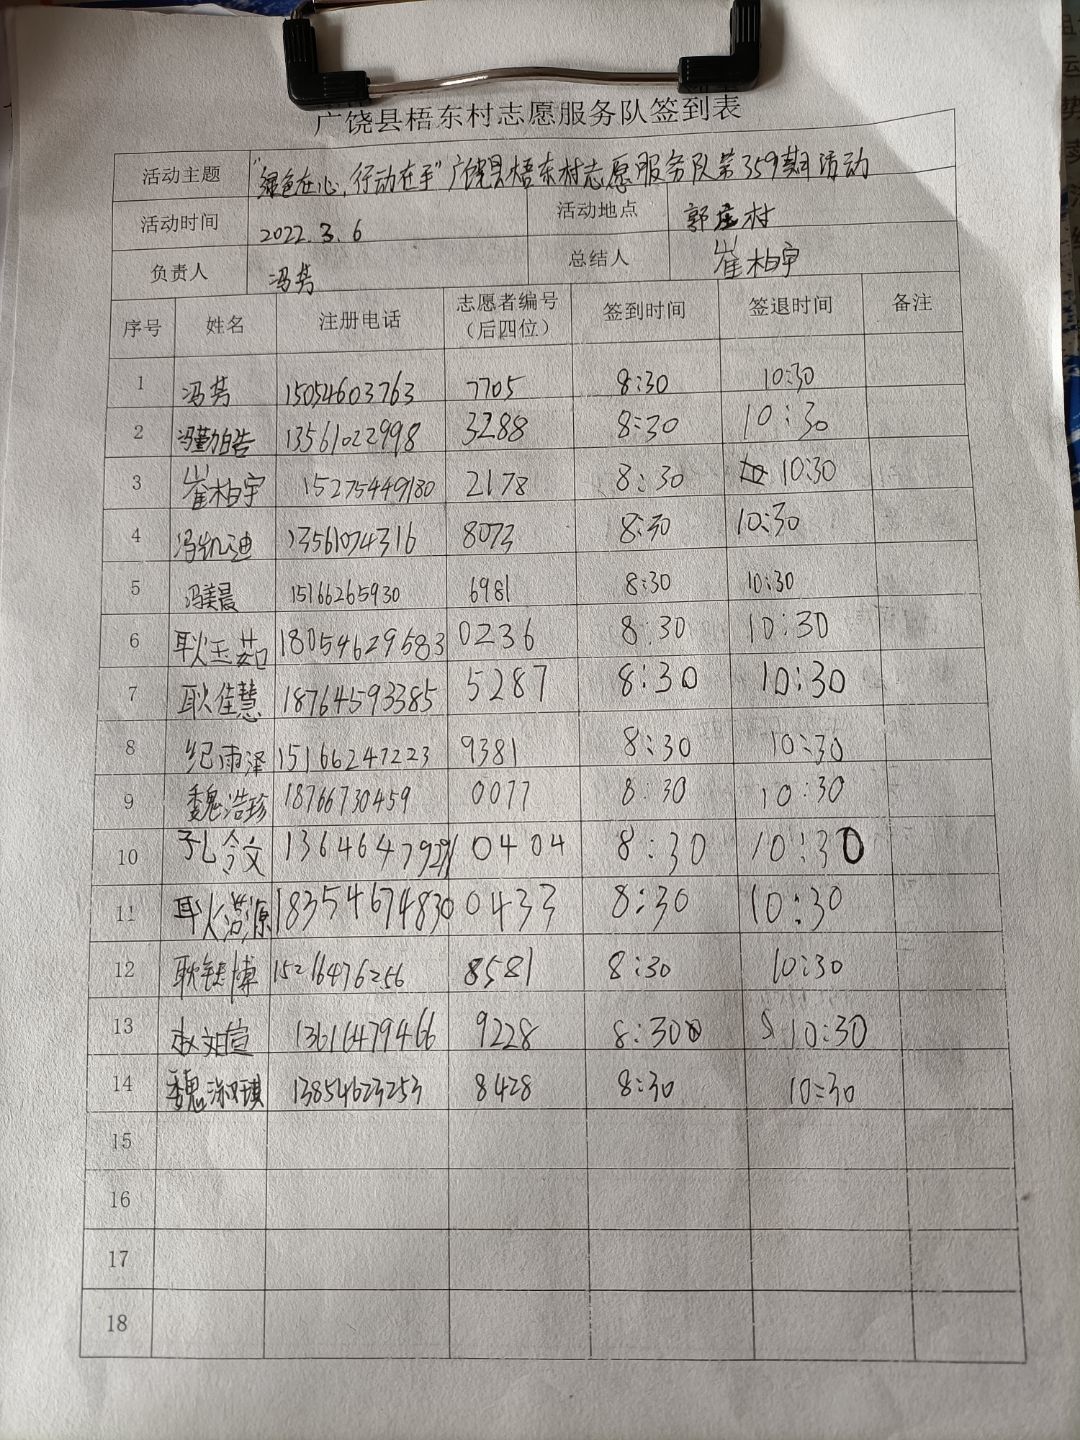 广饶县梧东村志愿服务队签到表
活动主题 “绿色在心,行动在手”广饶县梧东村志愿服务队第359期活动
活动时间 2022.3.6 活动地点 郭庄村
负责人 冯芳 总结人 崔柏宇
序号 姓名 注册电话 志愿者编号(后四位) 签到时间 签退时间 备注
1 冯芳 15054603763 7705 8:30 10:30
2 13561022998 3288 8:30 10:30
3 崔柏宇 15275449180 2178 8:30 10:30
4 冯凯迪 13561074316 8073 8:30 10:30
5 冯美晨 15166265930 6981 8:30 10:30
6 耿玉茹 18054629583 0236 8:30 10:30
7 耿佳慧 18764593385 5287 8:30 10:30
8 纪雨泽 15166247223 9381 8:30 10:30
9 魏浩珍 18766730459 0077 8:30 10:30
10 孔令文 0404 8:30 10:30
11 18354674830 0433 8:30 10:30
12 15216476256 8581 8:30 10:30
13 赵文暄 13616479466 9228 8:30 10:30
14 魏淑琪 13854623253 8428 8:30 10:30
15
16
17
18